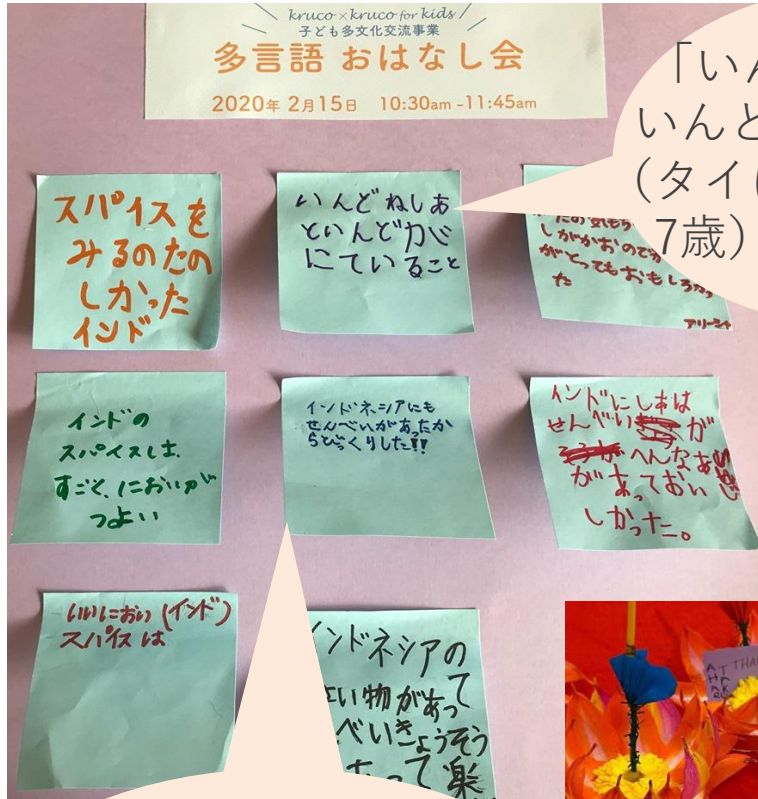 kruco×kruco for kids
子ども多文化交流事業
多言語 おはなし会
2020年 2月15日 10:30am -11:45am
「いん
いんと
(タイ
7歳)
スパイスを
みるのたの
しかった
インド
いんどねしあ
といんどが
にていること
しがかおので
がとってもおもしろかっ
た
アリーシャ
インドの
スパイスは、
すごく、においが
つよい
インドネシアにも
せんべいがあったか
らびっくりした!!
インドにしあは
せんべいが
へんなあじ
があっておい
しかった。
いいにおい(インド)
スパイスは
インドネシアの
い物があって
べいきょうそう
って楽
THA